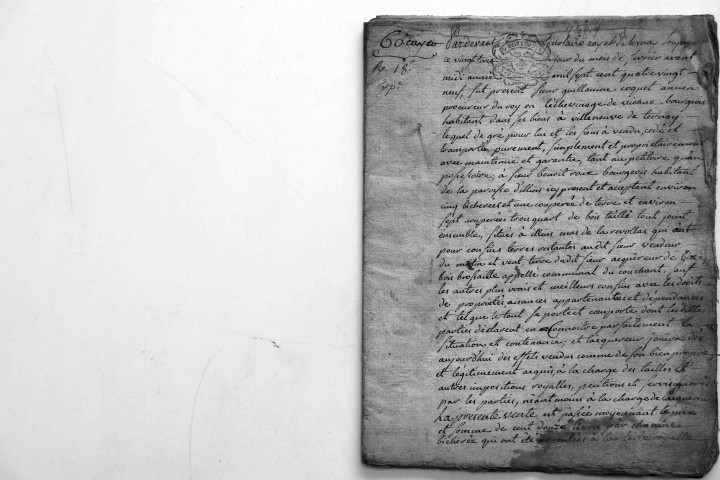 60 cayer
Pardevant Le notaire royal de ternay soussi
ce vingt trois jour du mois de fevrier avant
midi année mil sept cent quatre vingt
neuf, fut present sieur guillaume coquet ancien
procureur du roy en l'echevinage de vienne bourgeois
habitant dans ses biens à villeneuve de ternay
lequel de gré pour lui et les siens à vendu, cedé, et
transporté purement, simplement et proprietairement
avec maintenue et garantie, tant au petitoire, quau
possessoire, à sieur benoit roux bourgeois habitant
de la paroisse d'illins icy present et acceptant environ
cinq bicherées et une couperée de terre et environ
sept couperées trois quart de bois taillé tout joint
ensemble, situés à illins mas de la revollas qui ont
pour confins terres restantes audit sieur vendeur
du matin et vent, terre dudit sieur acquereur de bize
bois brossaille appellé communal du couchant, sauf
les autres plus vrais et meilleurs confins avec les droits
de propriétés, aisances appartenances et dépendances
et tel que le tout se porte et comporte dont lesdittes
parties déclarent en Connoitre parfaitement la
situation et contenance, et lacquereur jouira dès
aujourd'hui des effets vendus comme de son bien propre
et legitimement acquis, à la charge des tailles et
autres impositions royalles, pentions et servis
par les parties, néantmoins à la charge de lacquereur
La presente vente est passée moyennant le prix
et somme de cent douze livres par chacune
bicherée qui ont été à la